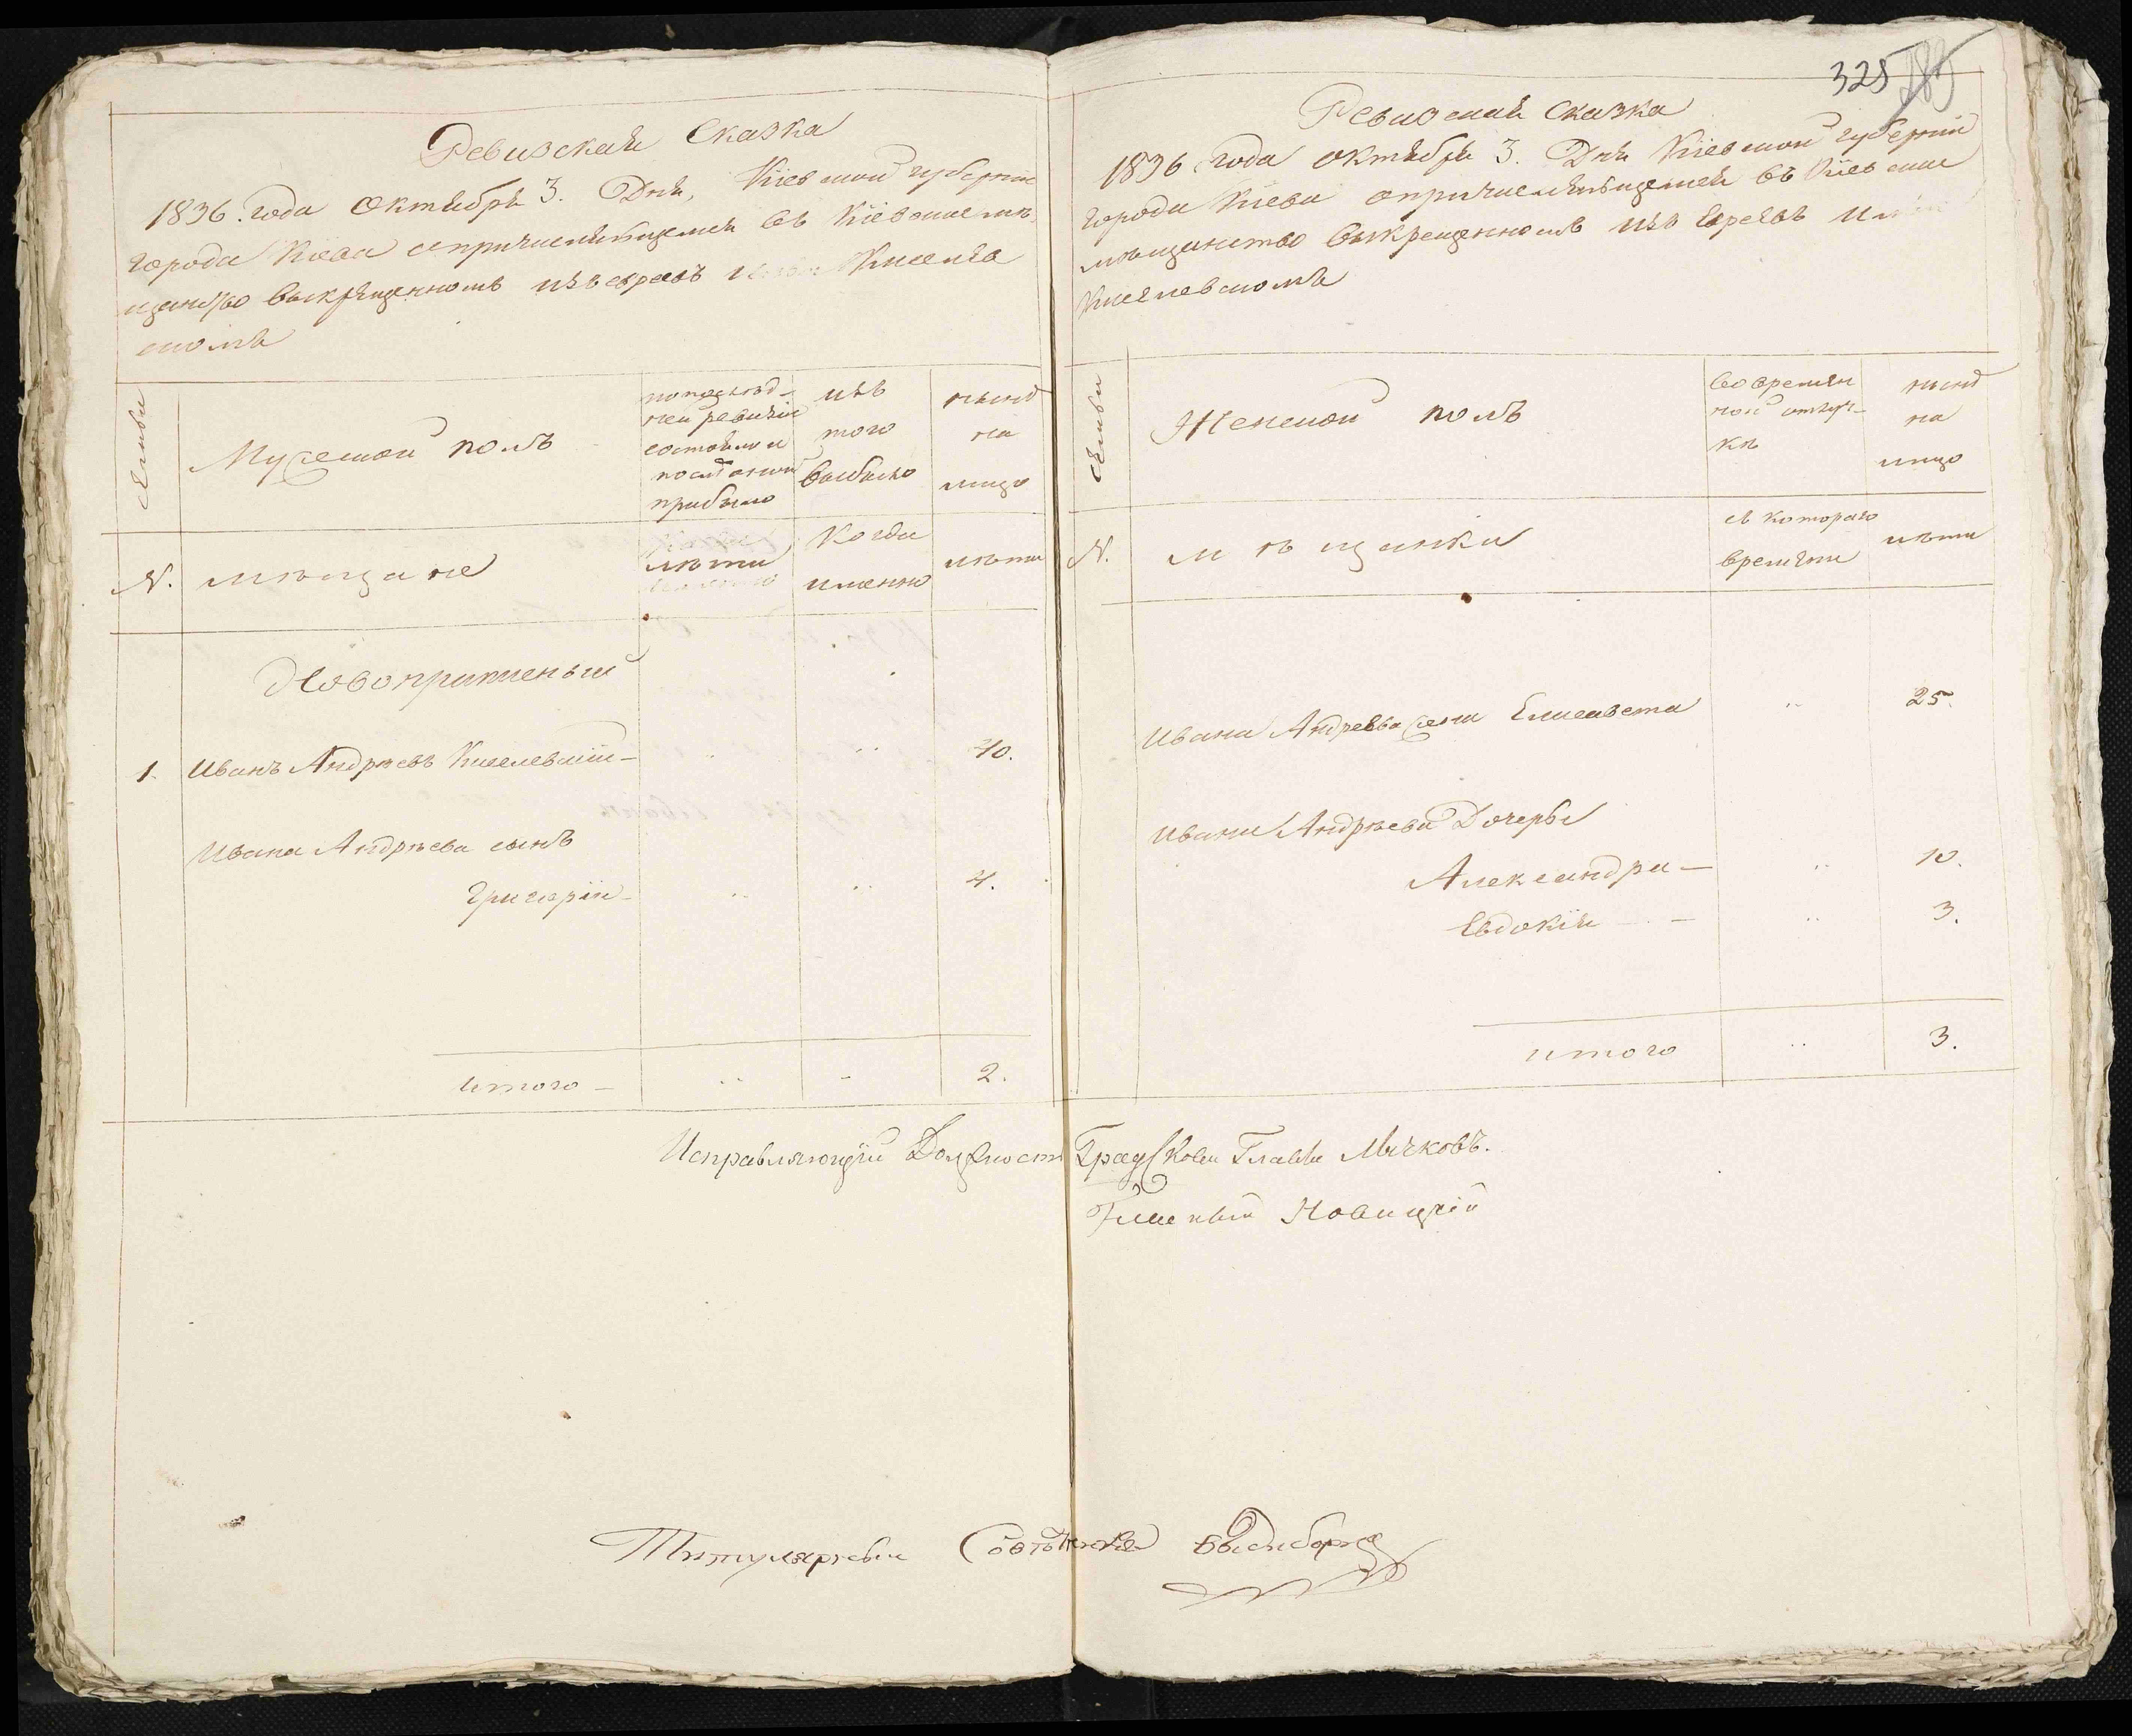 Ревизская Сказка
1836. года Октября 3. Дня, Кіевской губерніи
города Кіева опричисляющемся въ Кіевское мѣ-
щанство выкрещенномъ изъ евреевъ Киселев
скомъ
семьи
Мужеской полъ
по послѣд-
ней ревизіи
состояло и
послѣ оной
прибыло
изъ
того
выбыло
нынѣ
на
лицо
N. мѣщане
лѣта
Когда
именно
лѣта
Новопричисленый
1. Иванъ Андрѣевъ Киселевскій - " " 40.
Ивана Андрѣева сынъ
Григорій - " " 4.
итого - " - 2.
325
Ревизская Сказка
1836 года Октября 3. Дня Кіевской губерніи
города Кіева опричисляющемся въ Кіевское
мѣщанство выкрещенномъ изъ Евреевъ
Киселевскомъ
семьи
Женской полъ
во времян
ной отлуч-
кѣ
нынѣ
на
лицо
N. мѣщанки
съ котораго
времяни
лѣта
Ивана Андреева жена Елисавета " 25.
Ивана Андрѣева Дочери
Александра - " 10.
Евдокія - - " 3.
итого " 3.
Исправляющій Должность Градской Главы Мичковъ.
Гласный Новицкій
Титулярный Совѣтникъ